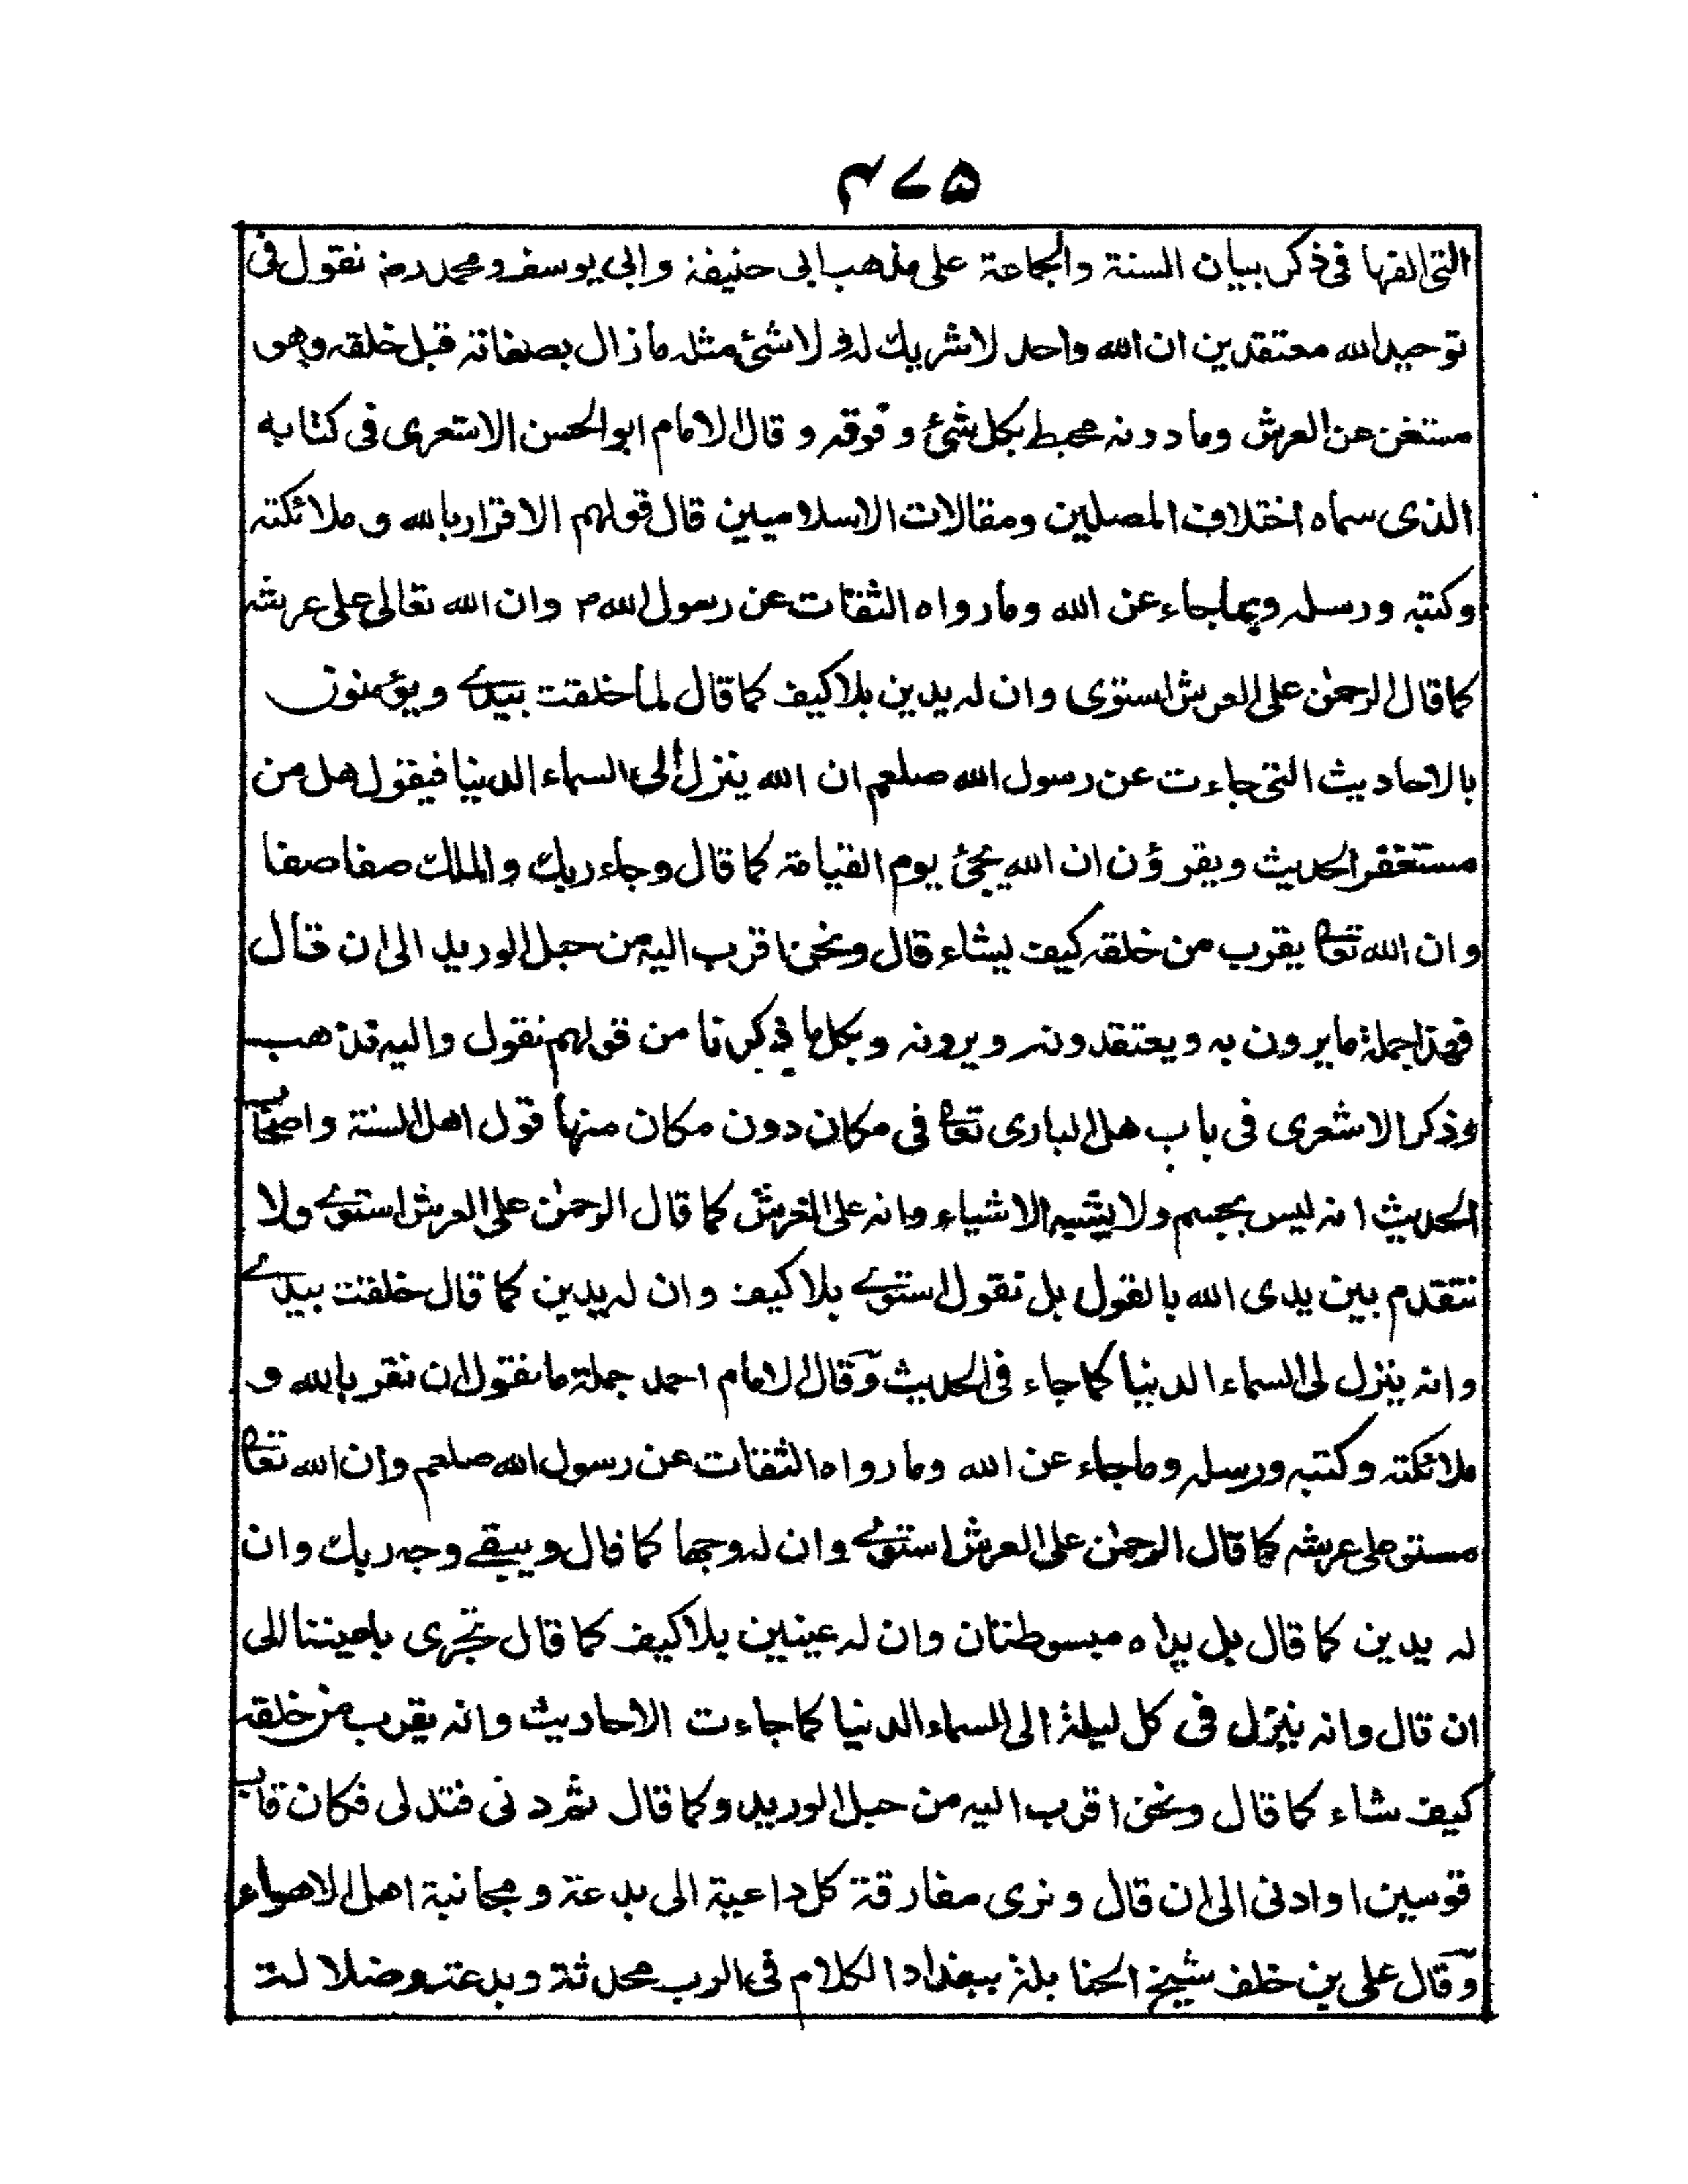 ۴۷۵
التی الفها فی ذکر بیان السنة والجماعة علی مذهب ابی حنیفة وابی یوسف و محمد رض نقول فی
توحید الله معتقدین ان الله واحد لا شریك له ولا شئ مثله ما زال بصفاته قبل خلقه وهو
مستغن عن العرش وما دونه محیط بکل شئ و فوقه و قال الامام ابو الحسن الاشعری فی کتابه
الذی سماه اختلاف المصلین ومقالات الاسلامیین قال قولهم الاقرار بالله و ملائکته
وکتبه ورسله وبما جاء عن الله وما رواه الثقات عن رسول الله ص وان الله تعالی علی عرشه
کما قال الرحمٰن علی العرش استوی وان له یدین بلا کیف کما قال لما خلقت بیدے ویؤمنون
بالاحادیث التی جاءت عن رسول الله صلعم ان الله ینزل الی السماء الدنیا فیقول هل من
مستغفر الحدیث ویقرؤن ان الله یجئ یوم القیامة کما قال وجاء ربك والملك صفا صفا
وان الله تعا یقرب من خلقه کیف یشاء قال ونحن اقرب الیه من حبل الورید الی ان قال
فهذا جملة ما یرون به ویعتقدونه ویرونه وبکل ما ذکرنا من قولهم نقول والیه نذهب
وذکر الاشعری فی باب هل الباری تعا فی مکان دون مکان منها قول اهل السنة واصحاب
الحدیث انه لیس بجسم ولا یشبه الاشیاء وانه علی العرش کما قال الرحمٰن علی العرش استوے ولا
نتقدم بین یدی الله بالقول بل نقول استوے بلا کیف وان له یدین کما قال خلقت بیدے
وانه ینزل الی السماء الدنیا کما جاء فی الحدیث وقال الامام احمد جملة ما نقول ان نقر بالله و
ملائکته وکتبه ورسله وما جاء عن الله وما رواه الثقات عن رسول الله صلعم وان الله تعا
مستو علی عرشه کما قال الرحمٰن علی العرش استوے وان له وجها کما قال ویبقے وجه ربك وان
له یدین کما قال بل یداه مبسوطتان وان له عینین بلا کیف کما قال تجری باعیننا الی
ان قال وانه ینزل فی کل لیلة الی السماء الدنیا کما جاءت الاحادیث وانه یقرب من خلقه
کیف شاء کما قال ونحن اقرب الیه من حبل الورید وکما قال ثم دنی فتدلی فکان قاب
قوسین او ادنی الی ان قال ونری مفارقة کل داعیة الی بدعة ومجانبة اهل الاهواء
وقال علی بن خلف شیخ الحنابلة ببغداد الکلام فی الرب محدثة وبدعة وضلالة